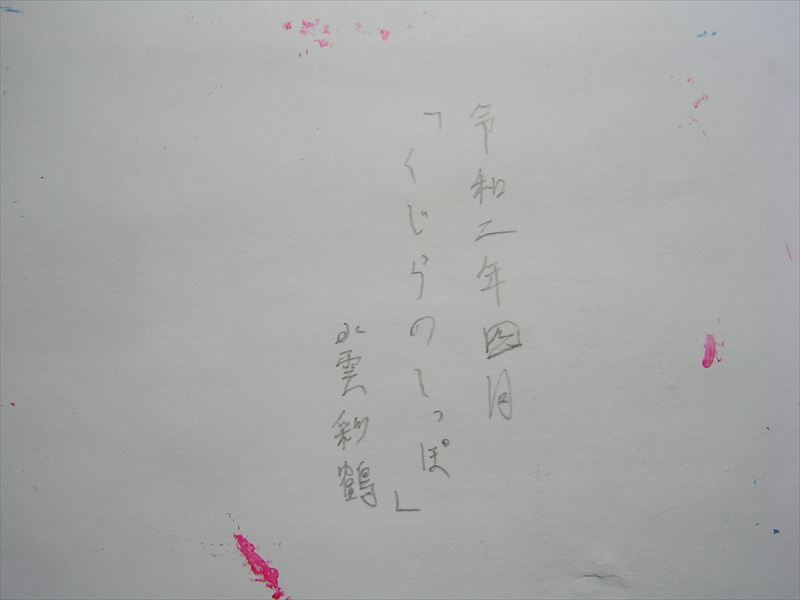 令和二年四月
「くじらのしっぽ」
水雲彩鶴